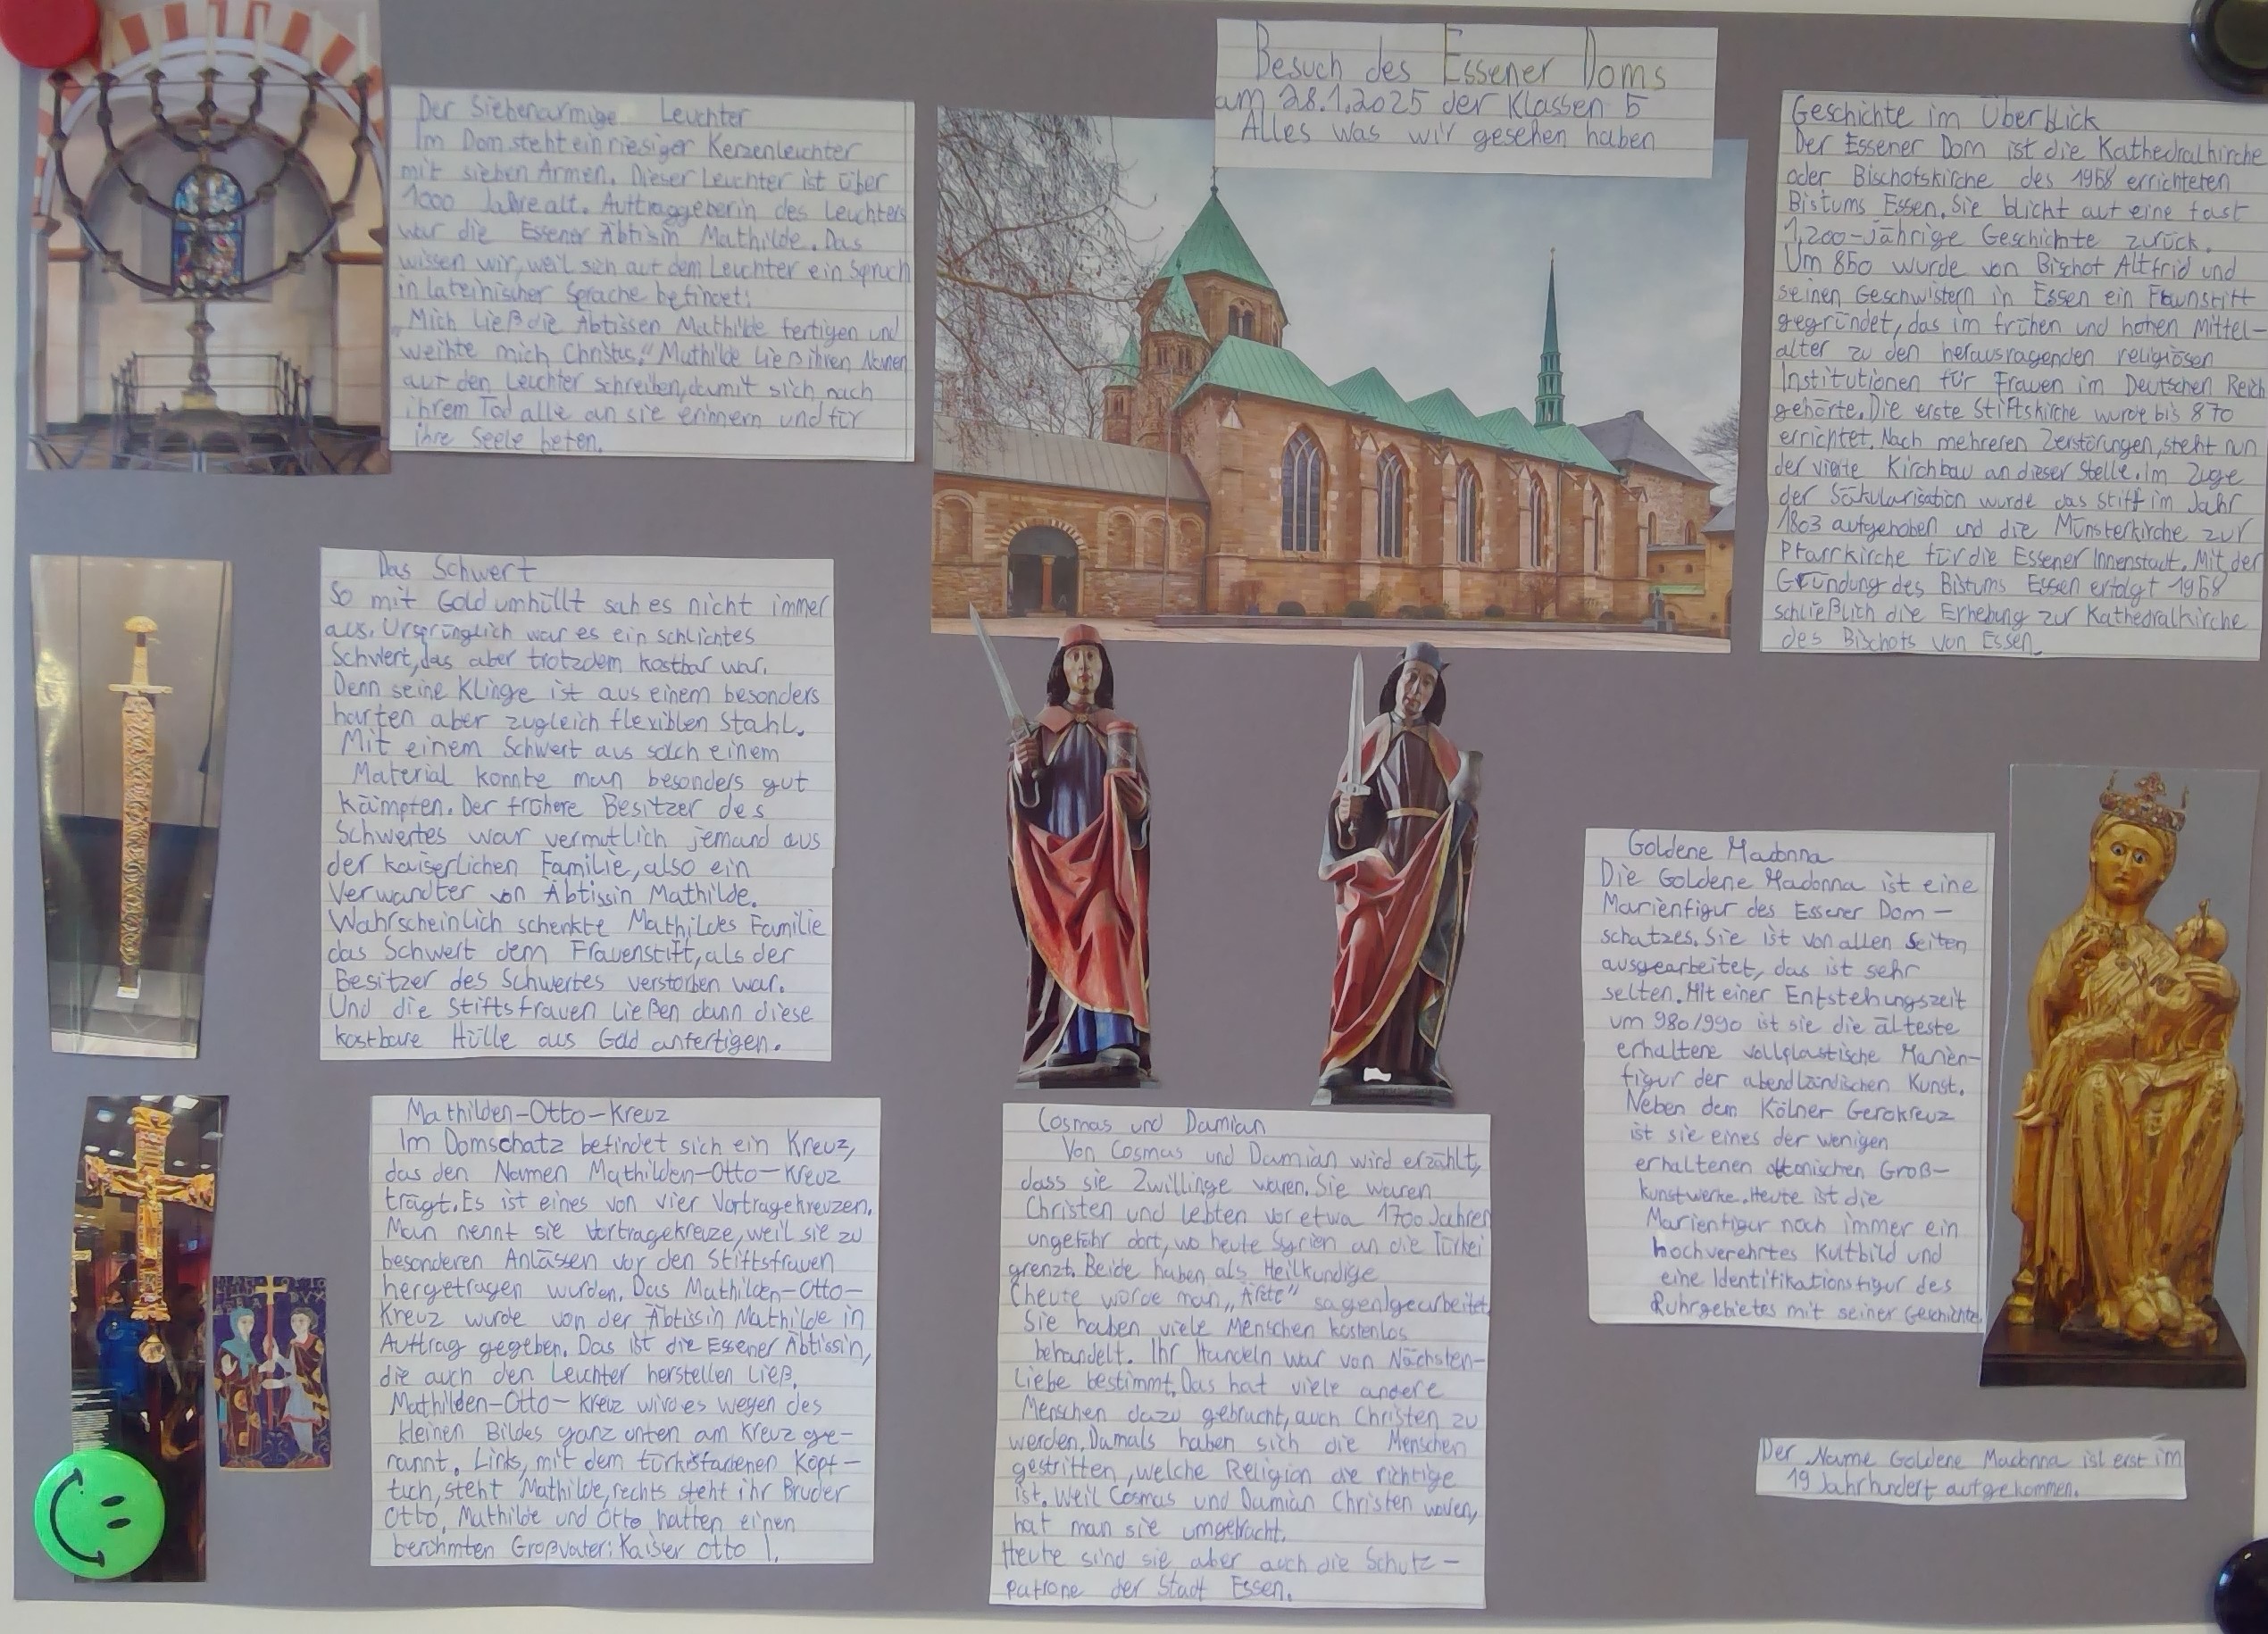 Besuch des Essener Doms
am 28.1.2025 der Klassen 5
Alles was wir gesehen haben
Der Siebenarmige Leuchter
Im Dom steht ein riesiger Kerzenleuchter
mit sieben Armen. Dieser Leuchter ist über
1000 Jahre alt. Auftraggeberin des Leuchters
war die Essener Äbtisin Mathilde. Das
wissen wir, weil sich auf dem Leuchter ein Spruch
in lateinischer Sprache befindet:
„Mich ließ die Äbtissen Mathilde fertigen und
weihte mich Christus." Mathilde ließ ihren Namen
auf den Leuchter schreiben, damit sich nach
ihrem Tod alle an sie erinnern und für
ihre Seele beten.
Geschichte im Überblick
Der Essener Dom ist die Kathedralkirche
oder Bischofskirche des 1958 errichteten
Bistums Essen. Sie blickt auf eine fast
1.200-jährige Geschichte zurück.
Um 850 wurde von Bischof Altfrid und
seinen Geschwistern in Essen ein
gegründet, das im frühen und hohen Mittel-
alter zu den herausragenden religiösen
Institutionen für Frauen im Deutschen Reich
gehörte. Die erste Stiftskirche wurde bis 870
errichtet. Nach mehreren Zerstörungen, steht nun
der vierte Kirchbau an dieser Stelle. Im Zuge
der Säkularisation wurde das Stift im Jahr
1803 aufgehoben und die Münsterkirche zur
Pfarrkirche für die Essener Innenstadt. Mit der
Gründung des Bistums Essen erfolgt 1958
schließlich die Erhebung zur Kathedralkirche
des Bischofs von Essen.
Das Schwert
So mit Gold umhüllt sah es nicht immer
aus. Ursprünglich war es ein schlichtes
Schwert, das aber trotzdem kostbar war.
Denn seine Klinge ist aus einem besonders
harten aber zugleich flexiblen Stahl.
Mit einem Schwert aus solch einem
Material konnte man besonders gut
kämpfen. Der frühere Besitzer des
Schwertes war vermutlich jemand aus
der kaiserlichen Familie, also ein
Verwandter von Äbtissin Mathilde.
Wahrscheinlich schenkte Mathildes Familie
das Schwert dem Frauenstift, als der
Besitzer des Schwertes verstorben war.
Und die Stiftsfrauen ließen dann diese
kostbare Hülle aus Gold anfertigen.
Goldene Madonna
Die Goldene Madonna ist eine
Marienfigur des Essener Dom-
schatzes. Sie ist von allen Seiten
ausgearbeitet, das ist sehr
selten. Mit einer Entstehungszeit
um 980/990 ist sie die älteste
erhaltene vollplastische Marien-
figur der abendländischen Kunst.
Neben dem Kölner Gerokreuz
ist sie eines der wenigen
erhaltenen ottonischen Groß-
kunstwerke. Heute ist die
Marienfigur noch immer ein
hochverehrtes Kultbild und
eine Identifikationsfigur des
Ruhrgebietes mit seiner Geschichte.
Mathilden-Otto-Kreuz
Im Domschatz befindet sich ein Kreuz,
das den Namen Mathilden-Otto-Kreuz
trägt. Es ist eines von vier Vortragekreuzen.
Man nennt sie Vortragekreuze, weil sie zu
besonderen Anlässen vor den Stiftsfrauen
hergetragen wurden. Das Mathilden-Otto-
Kreuz wurde von der Äbtissin Mathilde in
Auftrag gegeben. Das ist die Essener Äbtissin,
die auch den Leuchter herstellen ließ.
Mathilden-Otto-Kreuz wird es wegen des
kleinen Bildes ganz unten am Kreuz ge-
nannt. Links, mit dem türkisfarbenen Kopf-
tuch, steht Mathilde, rechts steht ihr Bruder
Otto. Mathilde und Otto hatten einen
berühmten Großvater: Kaiser Otto I.
Cosmas und Damian
Von Cosmas und Damian wird erzählt,
dass sie Zwillinge waren. Sie waren
Christen und lebten vor etwa 1700 Jahren
ungefähr dort, wo heute Syrien an die Türkei
grenzt. Beide haben als Heilkundige
(heute würde man „Ärzte" sagen) gearbeitet.
Sie haben viele Menschen kostenlos
behandelt. Ihr Handeln war von Nächsten-
liebe bestimmt. Das hat viele andere
Menschen dazu gebracht, auch Christen zu
werden. Damals haben sich die Menschen
gestritten, welche Religion die richtige
ist. Weil Cosmas und Damian Christen waren,
hat man sie umgebracht.
Heute sind sie aber auch die Schutz-
patrone der Stadt Essen.
Der Name Goldene Madonna ist erst im
19 Jahrhundert aufgekommen.